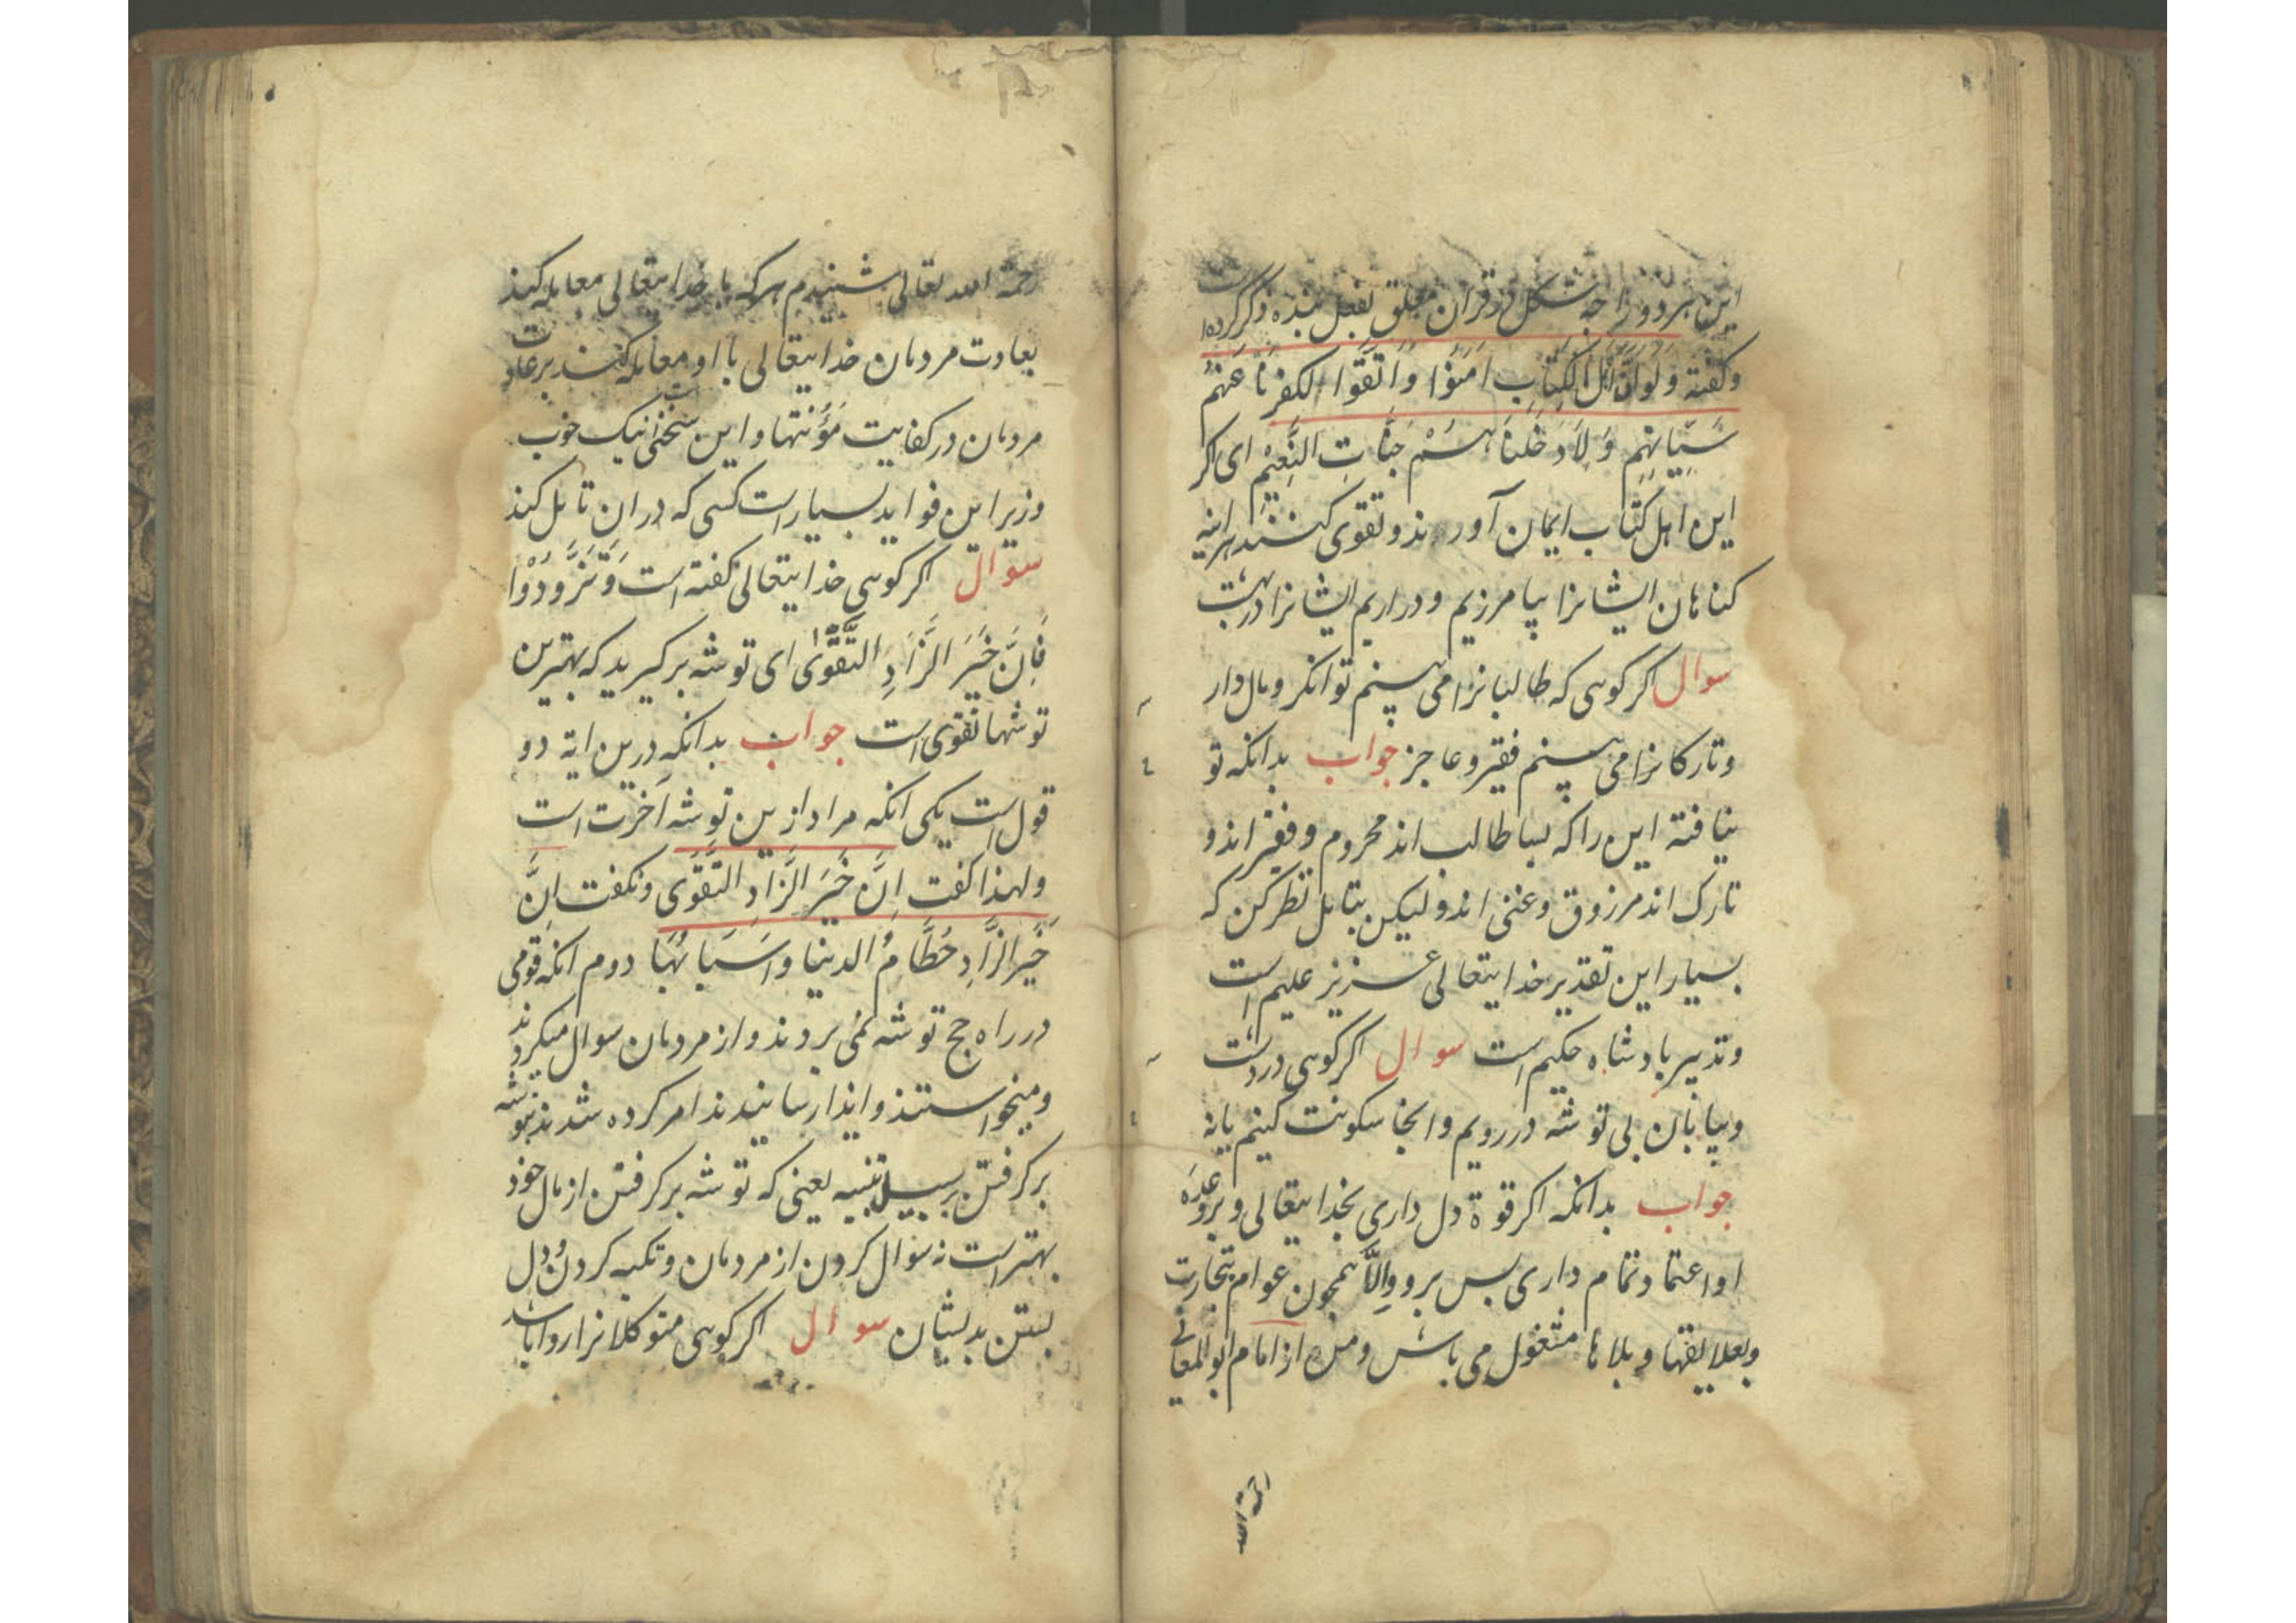 این هر دو را جه شکل در قران معلق بفعل بنده ذکر کرده است
وکفته وَلَوْ اَنَّ اَهْلَ الْکِتَابِ اٰمَنُوْا وَاتَّقَوْا لکفرنَا عَنْهُمْ
سَیِّاٰتِهِم وَلَاَدخَلنَاهُمْ جَنَّاتِ النَّعِیْمِ ای اکر
این اهل کتاب ایمان آورند و تقوی کنند هراینه
کناهان ایشانرا بیامرزیم و دراریم ایشانرا در بهشت
سوال اکر کوئی که طالبانرا می بینم توانکر و مال دار
وتارکانرا می بینم فقیر و عاجز جواب بدانکه تو
نیافته این را که بسا طالب اند محروم و فقیر اند و
تارک اند مرزوق و غنی اند و لیکن بتامل نظر کن که
بسیار این تقدیر خدایتعالی عزیز علیم است
وتدبیر بادشاه حکیم است سوال اکر کوئی در دشت
وبیابان بی توشه در رویم وانجا سکونت کنیم یا نه
جواب بدانکه اکر قوة دل داری بخدایتعالی و بر وعدهٔ
او اعتماد تمام داری بس برو وَاِلَّا همجون عوام بتجارت
وبعلایقها و بلاها مشغول می باش ومن از امام ابو المعانی
رحمة الله
رحمة الله تعالی شنیدم هرکه با خدایتعالی معامله کند
بعادت مردمان خدایتعالی با او معامله کند بر عادت
مردمان در کفایت مَؤُنتها و این سخنی نیک خوب است
وزیر این فواید بسیار است کسی که در ان تامل کند
سوال اکر کوئی خدایتعالی کفته است وَتَزَوَّدُوْا
فَاِنَّ خَیْرَ الزَّادِ التَّقْوٰی ای توشه برکیرید که بهترین
توشها تقوی است جواب بدانکه درین ایه دو
قول است یکی انکه مراد ازین توشه اخرت است
ولهذا کفت اِنَّ خَیْرَ الزَّادِ التَّقْوٰی ونکفت اِنَّ
خَیْرَ الزَّادِ حُطَّامُ الدنیا واَسْبَابُهَا دوم انکه قومی
در راه حج توشه نمی بردند و از مردمان سوال میکردند
ومیخواستند و ایذا رسانیدند امر کرده شدند بتوشه
برکرفتن بر سبیل تنبیه یعنی که توشه برکرفتن از مال خود
بهتر است نه سوال کردن از مردمان و تکیه کردن و دل
بستن بدیشان سوال اکر کوئی متوکلانرا روا باشد